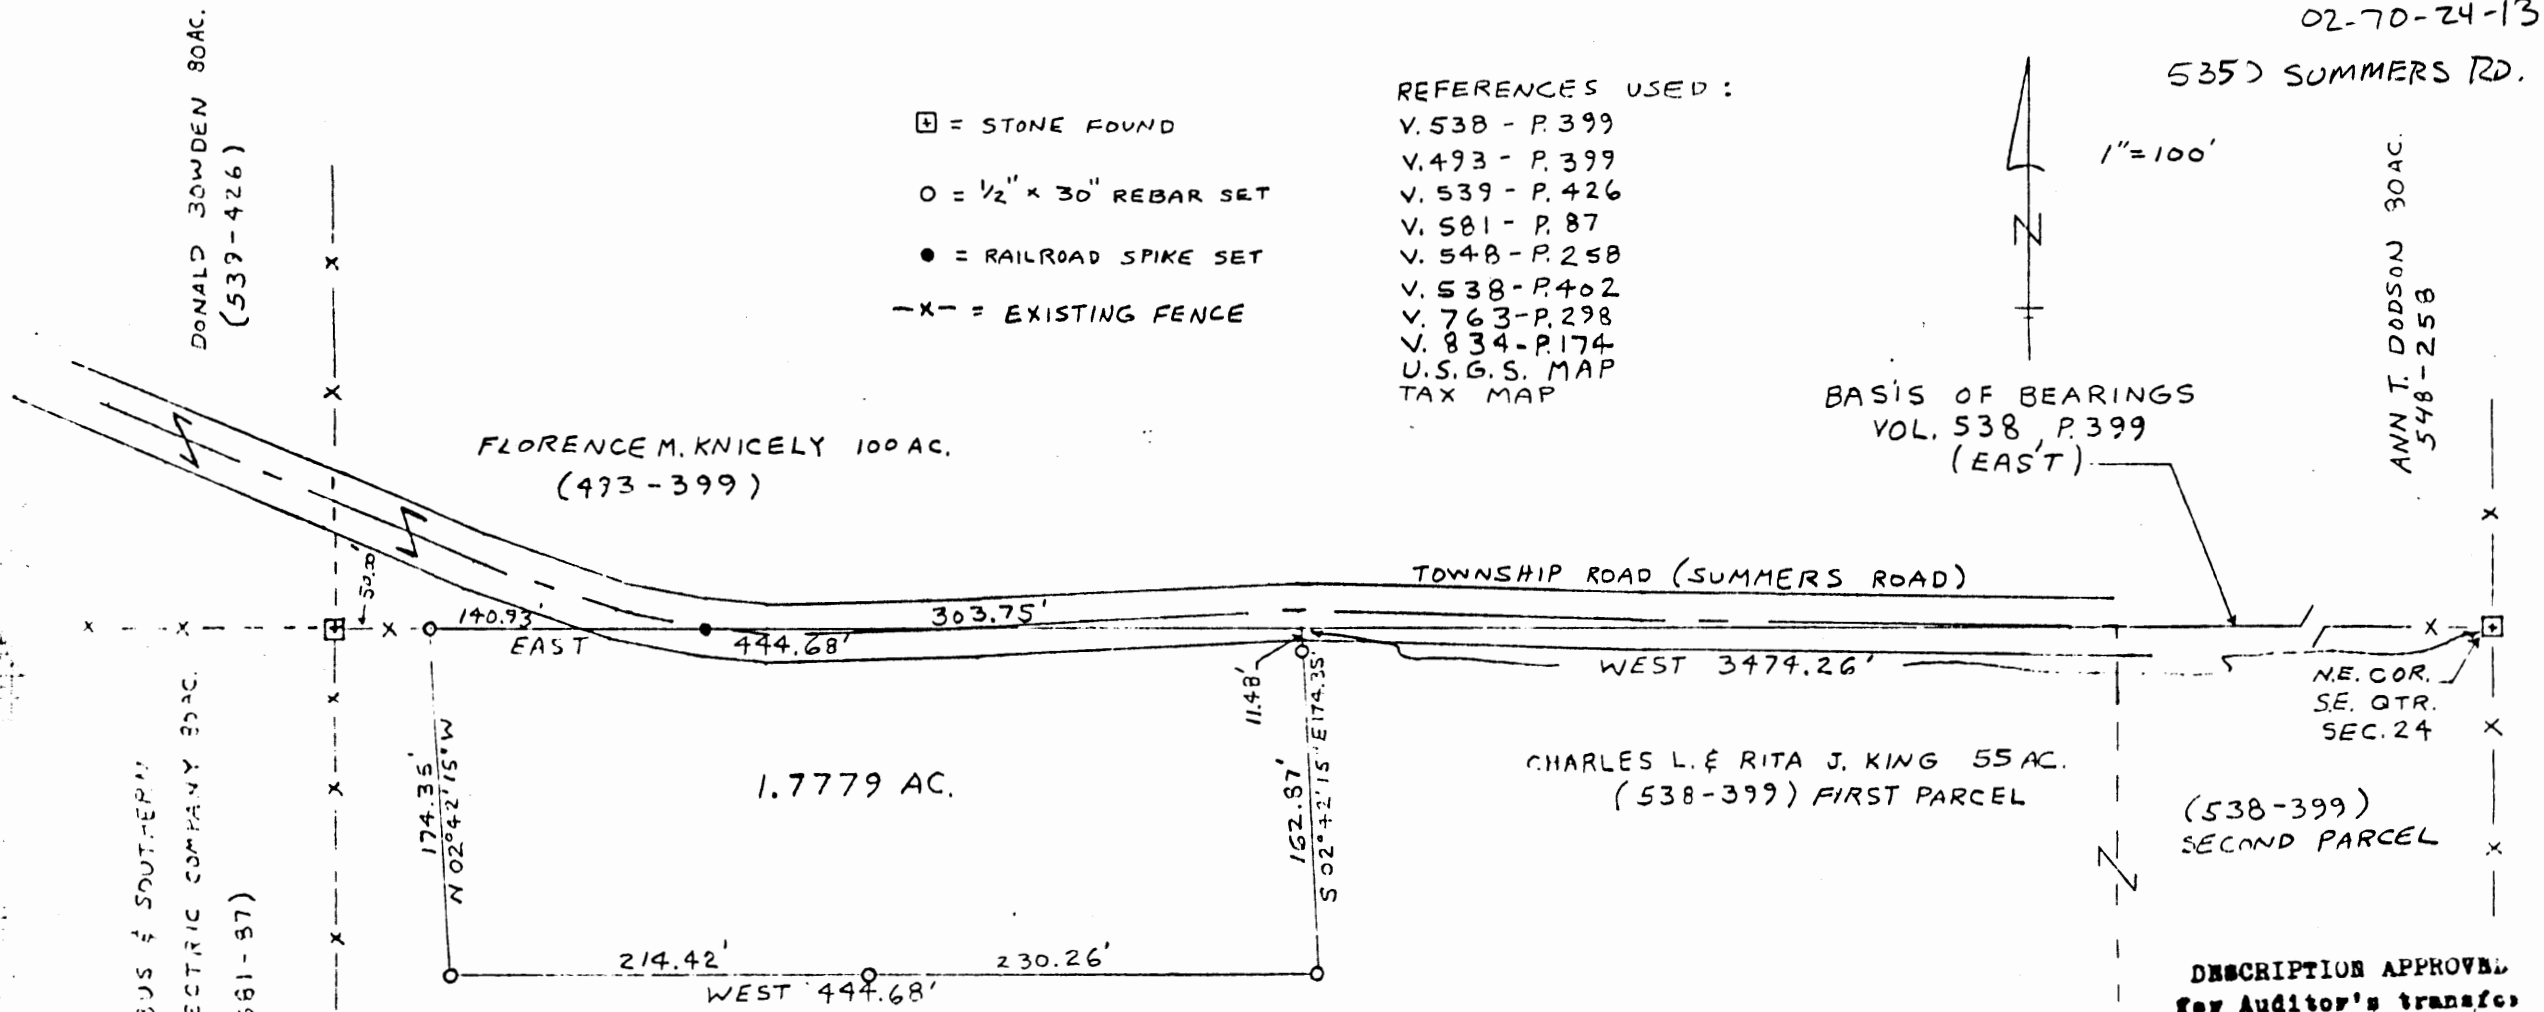 02-70-24-13
SUMMERS RD.
DONALD BOWDEN 80AC.
(539-426)
= STONE FOUND
= 1/2" x 30" REBAR SET
= RAILROAD SPIKE SET
-x- = EXISTING FENCE
REFERENCES USED:
V. 538 - P. 399
V. 493 - P. 399
V. 539 - P. 426
V. 581 - P. 87
V. 548 - P. 258
V. 538 - P. 402
V. 763 - P. 298
V. 834 - P. 174
U.S.G.S. MAP
TAX MAP
N
1"=100'
ANN T. DODSON 80AC.
548-258
BASIS OF BEARINGS
VOL. 538, P. 399
(EAST)
FLORENCE M. KNICELY 100 AC.
(493-399)
TOWNSHIP ROAD (SUMMERS ROAD)
50.00'
140.93'
303.75'
EAST
444.68'
WEST 3474.26'
N.E. COR.
S.E. QTR.
SEC. 24
11.48'
174.35'
N 02°42'15"W
1.7779 AC.
162.87'
S 02°42'15"E 174.35'
CHARLES L. & RITA J. KING 55 AC.
(538-399) FIRST PARCEL
(538-399)
SECOND PARCEL
US & SOUTHERN
ECTRIC COMPANY
581-87)
214.42'
230.26'
WEST 444.68'
DESCRIPTION APPROVED
for Auditor's transfer